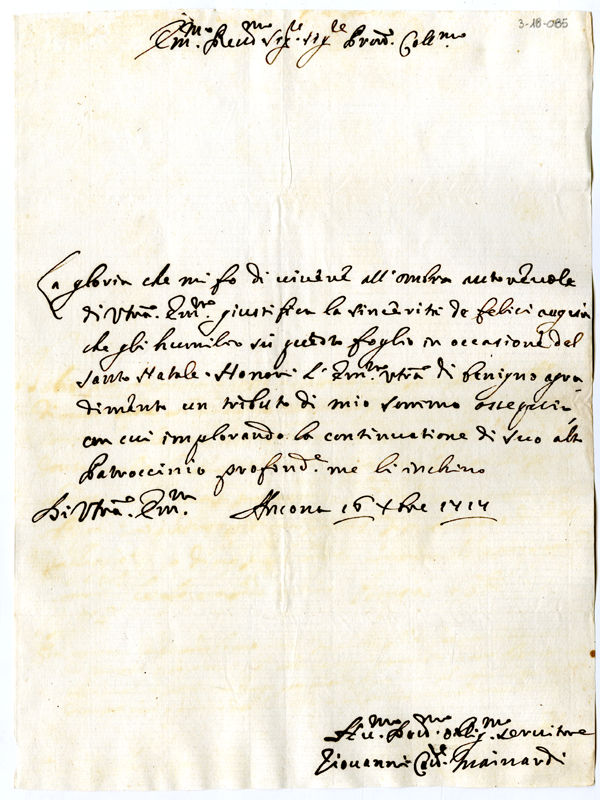 3-18-085
Em.mo Reud.mo Sig.re Sig.re Pron. Col.mo
La gloria che mi fo di uiuere all'ombra autoreuole
di Vtra. Em.za giustifica la sincerità de felici auguri
che gli humilio su questo foglio in occasione del
Santo Natale. Honori l'Em.za Vtra di benigno agra
dimento un tributo di mio sommo ossequio,
con cui implorando la continuatione di suo alto
Patroccinio profond.e me li inchino
Di Vtra. Em.za Ancona 16 Xbre 1714
Hu.mo Deu.mo oblig.mo seruitore
Giouanni Mainardi